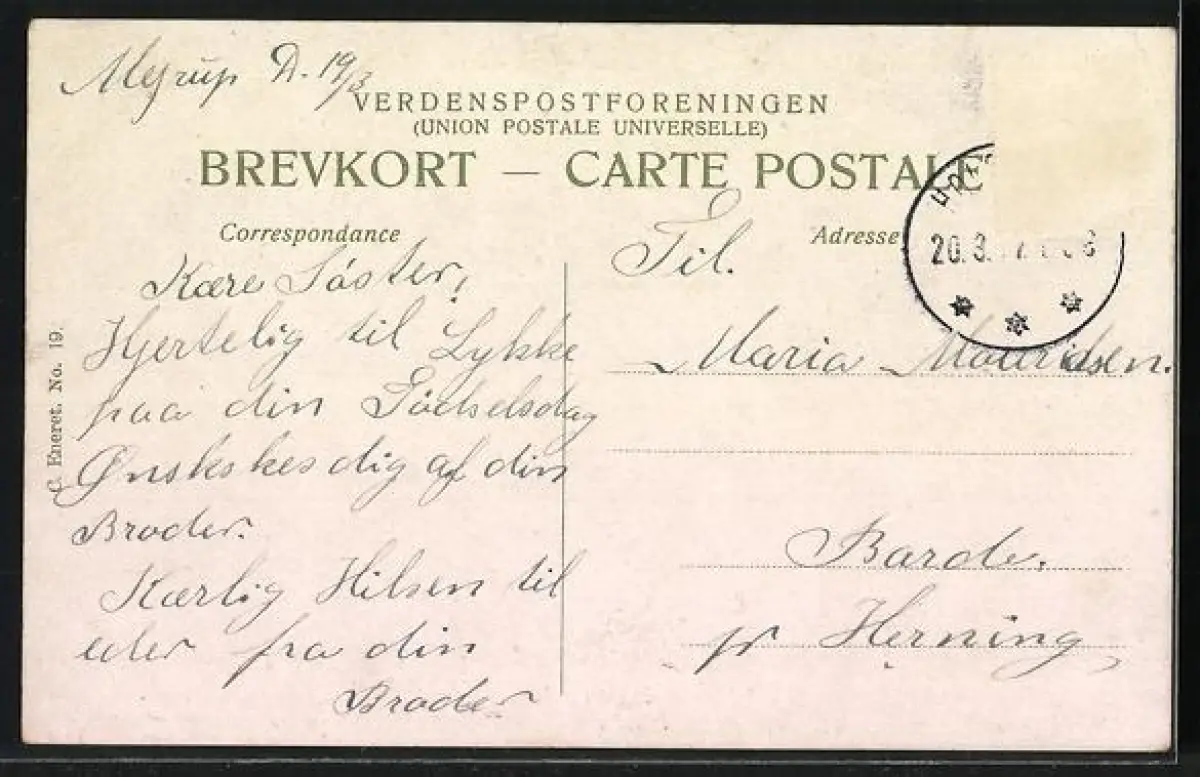 Mejrup D. 19/3
VERDENSPOSTFORENINGEN
(UNION POSTALE UNIVERSELLE)
BREVKORT — CARTE POSTALE
Correspondance
Kære Söster,
Hjertelig til Lykke
paa din Födselsdag
Ønskskes dig af din
Broder.
Kærlig Hilsen til
eder fra din
Broder
Eneret. No. 19.
Adresse
Til.
Maria Mouridsen.
Barde.
pr Herning
20.3.